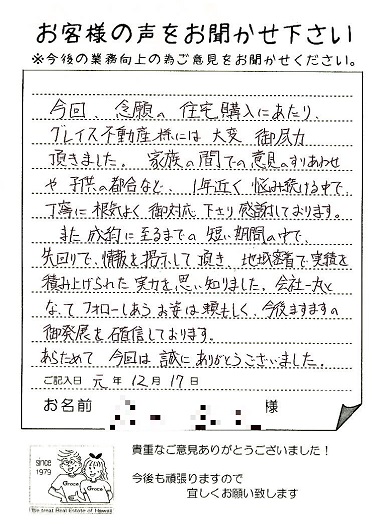 お客様の声をお聞かせ下さい
※今後の業務向上の為ご意見をお聞かせください。
今回、念願の住宅購入にあたり、
グレイス不動産様には大変御尽力
頂きました。家族の間での意見のすりあわせ
や子供の都合など、1年近く悩み続ける中で、
丁寧に根気よく御対応下さり感謝しております。
また成約に至るまでの短い期間の中で、
先回りで、情報を掲示して頂き、地域密着で実績を
積み上げられた実力を思い知りました。会社一丸と
なってフォローしあう お姿は頼もしく、今後ますますの
御発展を確信しております。
あらためて 今回は誠にありがとうございました。
ご記入日 元年12月17日
お名前 様
貴重なご意見ありがとうございました！
今後も頑張りますので
宜しくお願い致します
since
1979
Grace
Grace
We treat Real Estate of Hawaii